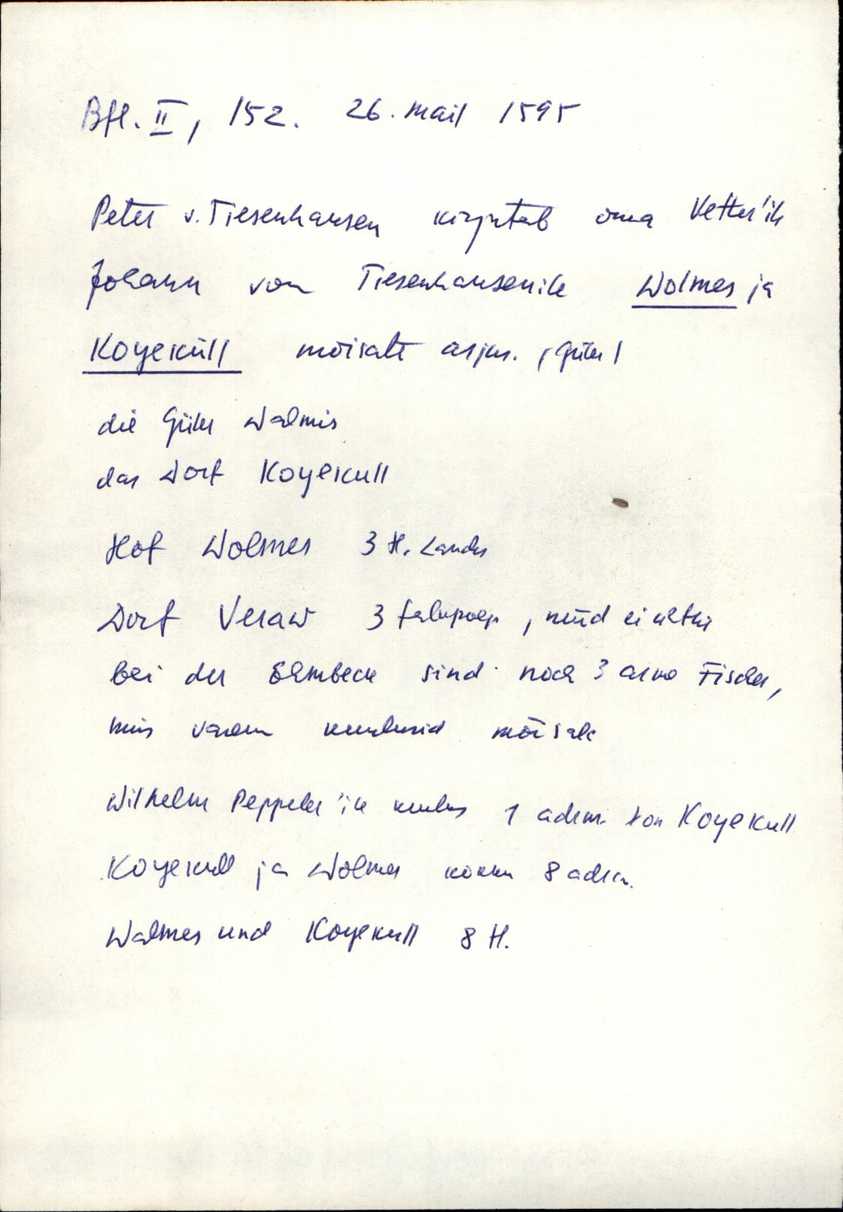 Bfl. II, 152. 26. mail 1595
Peter v. Tiesenhausen kirjutab oma Vetter'ile
Johann von Tiesenhausenile Wolmes ja
Koyeküll mõisate asjus. (Güter)
die Güter Walmis
das Dorf Koyekull
Hof Wolmes 3 H. Landes
Dorf Veraw 3 talupoega, nüüd ei
bei der sind noch 3 arme Fischer,
mis varem mõisale
Wilhelm 'ile 1 adrm. von Koyekull
Koyekull ja Wolmes kokku 8 adrm.
Walmes und Koyekull 8 H.